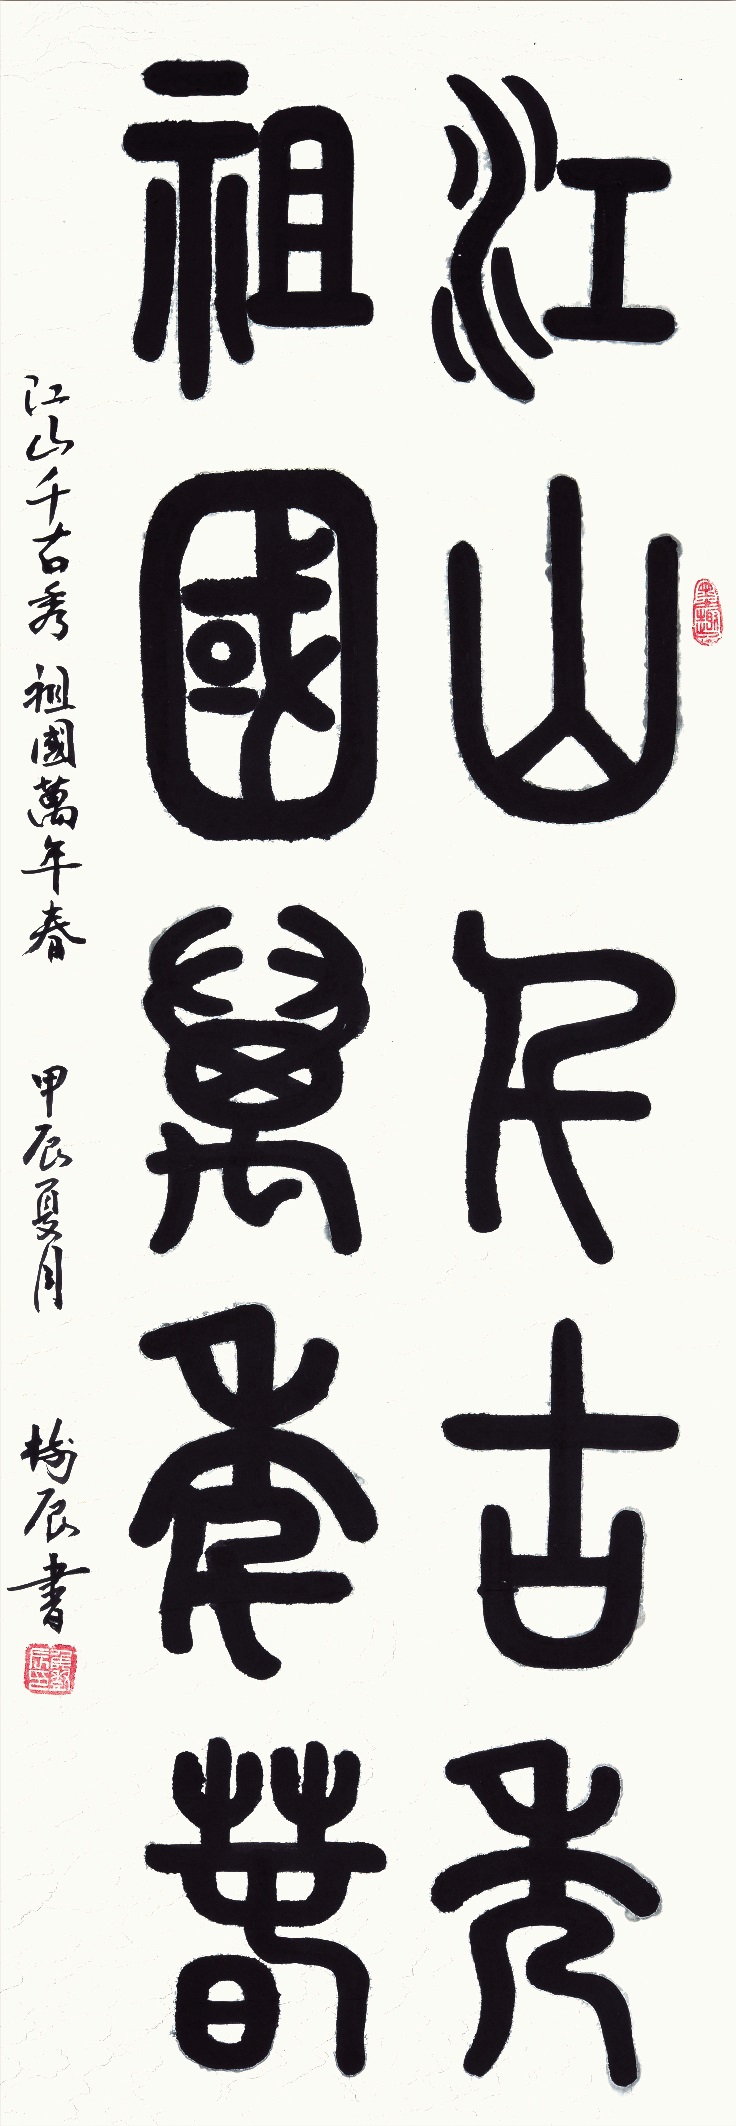 江山千古秀
祖國萬年春
江山千古秀 祖國萬年春 甲辰夏月 辰書